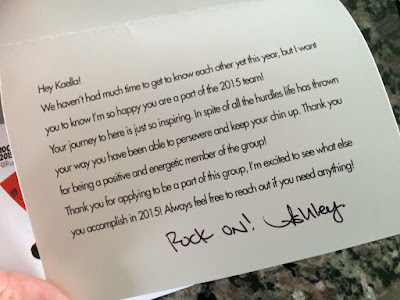 Hey Kaella!
We haven't had much time to get to know each other yet this year, but I want
you to know I'm so happy you are a part of the 2015 team!
Your journey to here is just so inspiring. In spite of all the hurdles life has thrown
your way you have been able to persevere and keep your chin up. Thank you
for being a positive and energetic member of the group!
Thank you for applying to be a part of this group, I'm excited to see what else
you accomplish in 2015! Always feel free to reach out if you need anything!
Rock on! Ashley